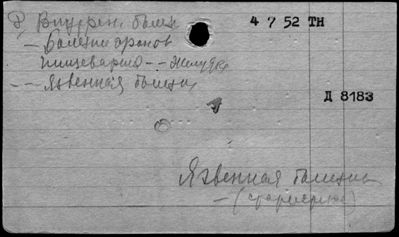 Р Внутрен. болезн 4 7 52 ТН
— Болезни органов
пищеварения -- Желудка
-- Язвенная болезнь
Д 8183
Язвенная болезнь